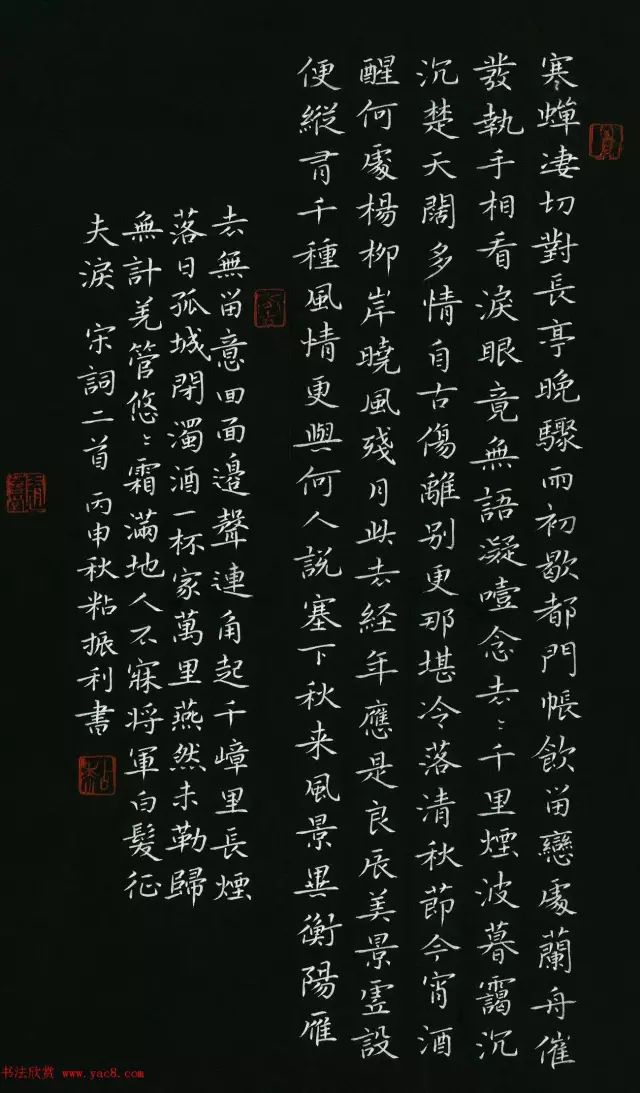 寒蟬淒切對長亭晚驟雨初歇都門帳飲留戀處蘭舟催
發執手相看淚眼竟無語凝噎念去〻千里煙波暮靄沉
沉楚天闊多情自古傷離别更那堪冷落清秋節今宵酒
醒何處楊柳岸曉風殘月此去經年應是良辰美景虛設
便縱有千種風情更與何人説塞下秋来風景異衡陽雁
去無留意四面邊聲連角起千嶂里長煙
落日孤城閉濁酒一杯家萬里燕然未勒歸
無計羌管悠〻霜滿地人不寐将軍白髮征
夫淚 宋詞二首 丙申秋粘振利書
书法欣赏 www.yac8.com